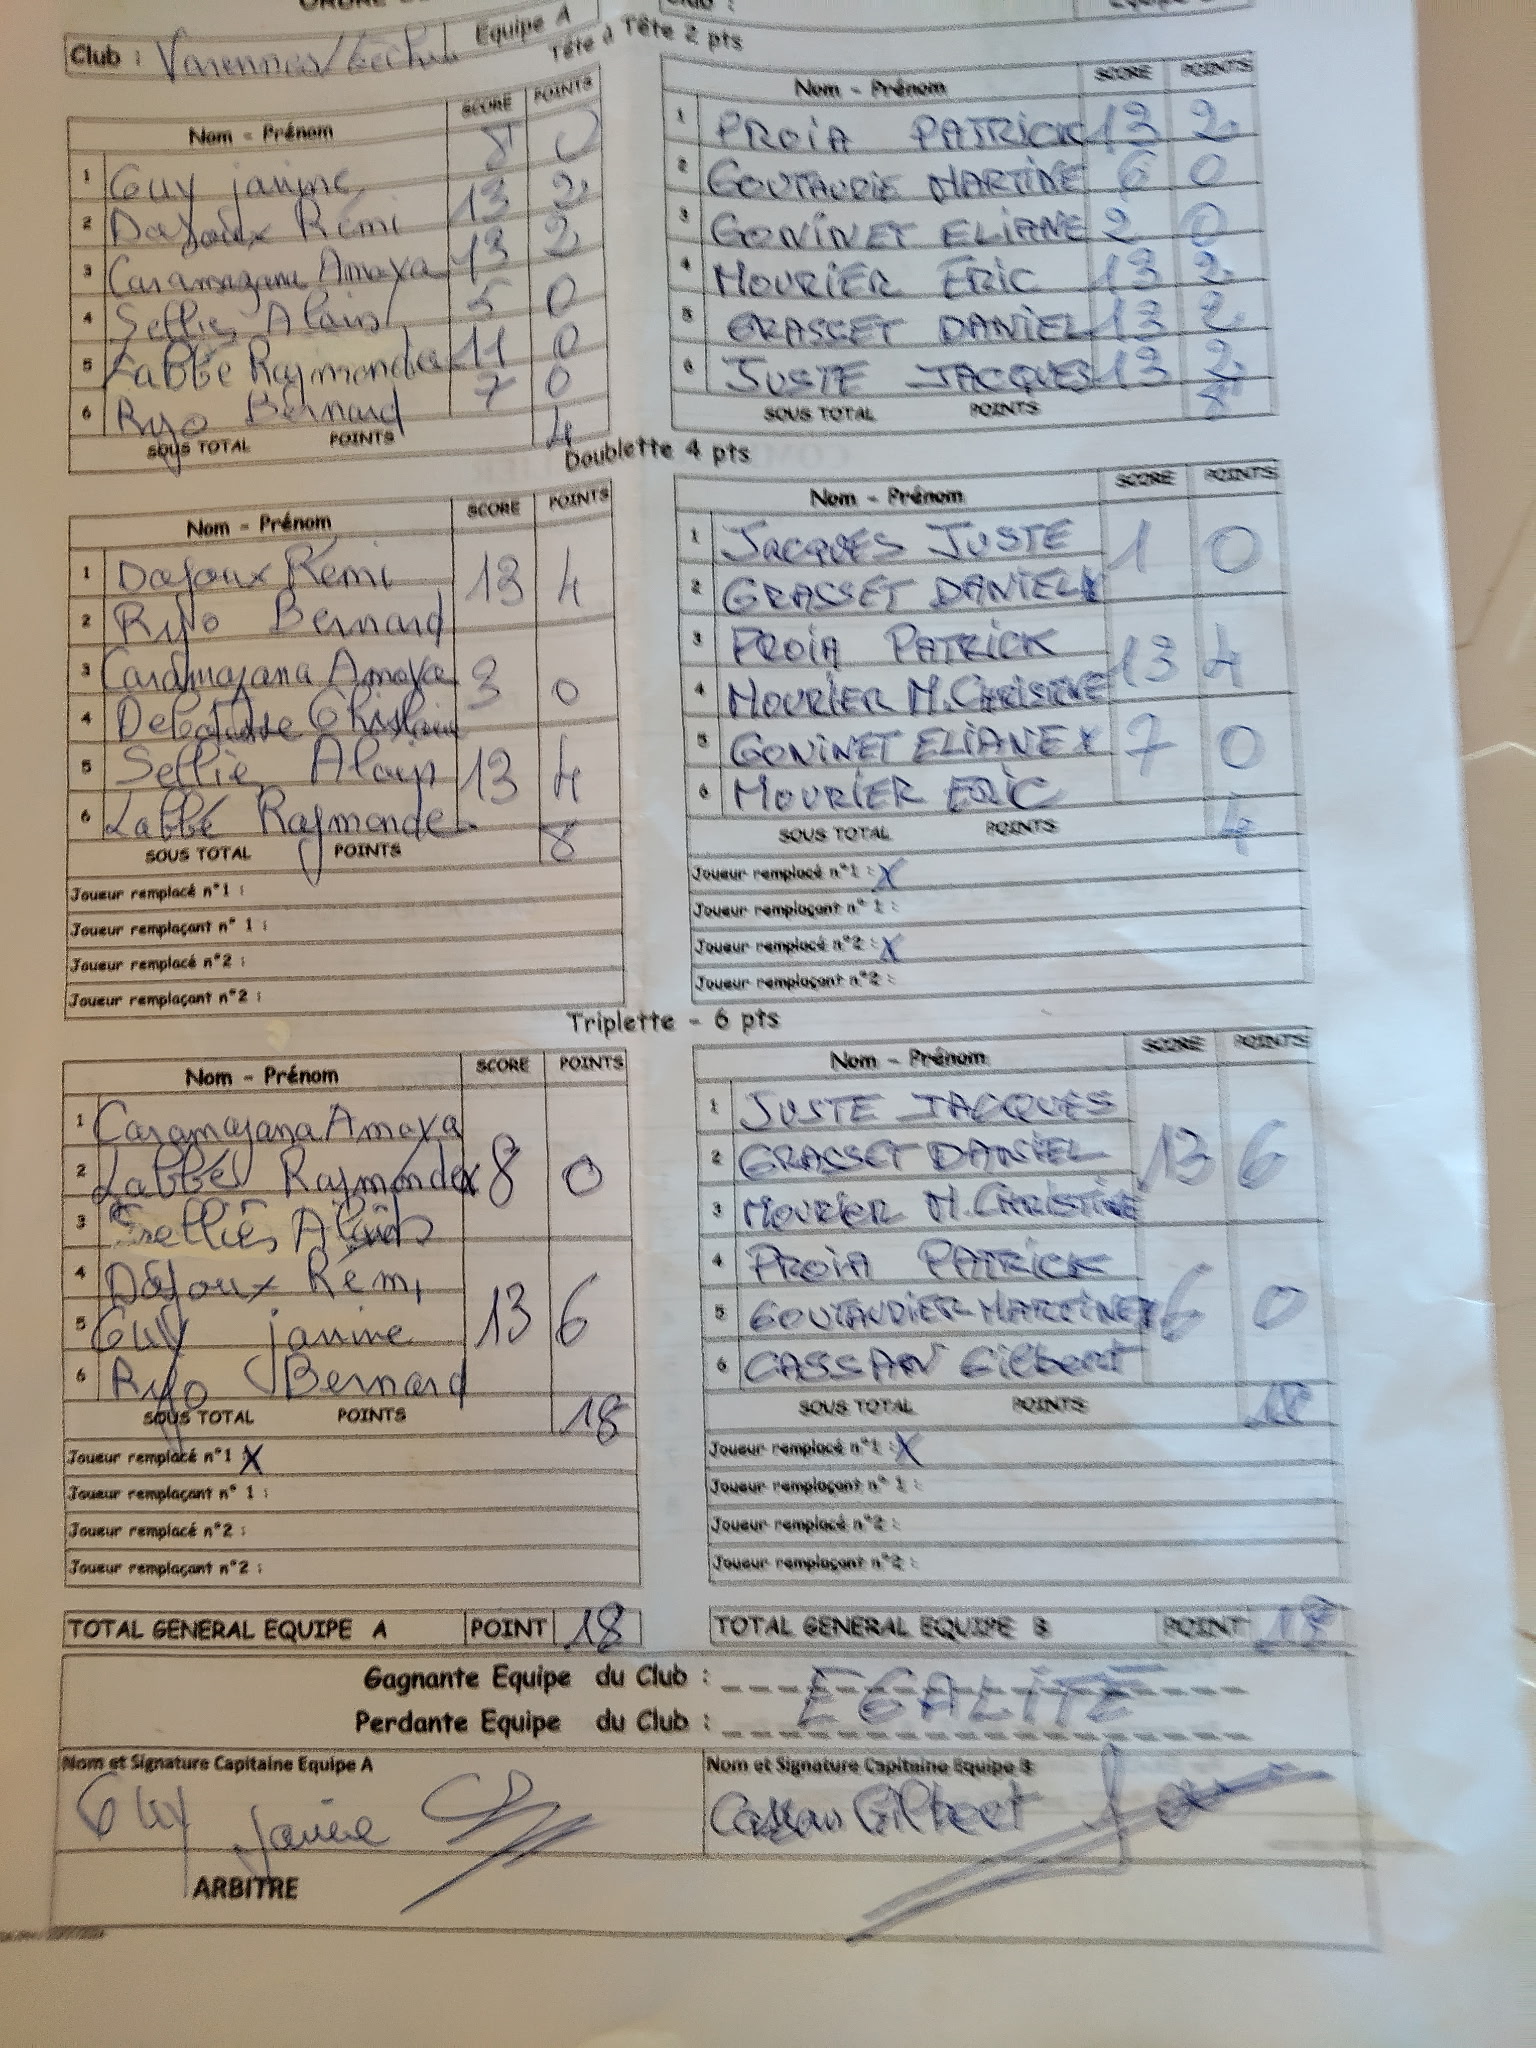 Club :
Equipe A
Tête à Tête 2 pts
Nom - Prénom SCORE POINTS
1 Guy janine 8 0
2 Dajoux Rémi 13 2
3 Caramajana Amaya 13 2
4 Selliès Alain 5 0
5 Labbé Raymonde 11 0
6 Ryo Bernard 7 0
SOUS TOTAL POINTS 4
Nom - Prénom SCORE POINTS
1 PROIA PATRICK 13 2
2 GOUTAUDIE MARTINE 6 0
3 GONINET ELIANE 2 0
4 MOURIER ERIC 13 2
5 GRASSET DANIEL 13 2
6 JUSTE JACQUES 13 2
SOUS TOTAL POINTS 8
Doublette 4 pts
Nom - Prénom SCORE POINTS
1 Dajoux Rémi 13 4
2 Ryo Bernard
3 Caramajana Amaya 3 0
4
5 Selliès Alain 13 4
6 Labbé Raymonde
SOUS TOTAL POINTS 8
Joueur remplacé n°1 :
Joueur remplaçant n° 1 :
Joueur remplacé n°2 :
Joueur remplaçant n°2 :
Nom - Prénom SCORE POINTS
1 JACQUES JUSTE 1 0
2 GRASSET DANIEL X
3 PROIA PATRICK 13 4
4 MOURIER M.CHRISTINE
5 GONINET ELIANE X 7 0
6 MOURIER ERIC
SOUS TOTAL POINTS 4
Joueur remplacé n°1 : X
Joueur remplaçant n° 1 :
Joueur remplacé n°2 : X
Joueur remplaçant n°2 :
Triplette - 6 pts
Nom - Prénom SCORE POINTS
1 Caramajana Amaya 8 0
2 Labbé Raymonde X
3 Selliès Alain
4 Dajoux Rémi 13 6
5 Guy janine
6 Ryo Bernard
SOUS TOTAL POINTS 18
Joueur remplacé n°1 X
Joueur remplaçant n° 1 :
Joueur remplacé n°2 :
Joueur remplaçant n°2 :
Nom - Prénom SCORE POINTS
1 JUSTE JACQUES 13 6
2 GRASSET DANIEL
3 MOURIER M.CHRISTINE
4 PROIA PATRICK 6 0
5 GOUTAUDIER MARTINE X
6 CASSAN Gilbert
SOUS TOTAL POINTS 18
Joueur remplacé n°1 : X
Joueur remplaçant n° 1 :
Joueur remplacé n°2 :
Joueur remplaçant n°2 :
TOTAL GENERAL EQUIPE A POINT 18
TOTAL GENERAL EQUIPE B POINT 18
Gagnante Equipe du Club :
EGALITÉ
Perdante Equipe du Club :
Nom et Signature Capitaine Equipe A
Guy Janine
Nom et Signature Capitaine Equipe B
Cassan Gilbert
ARBITRE